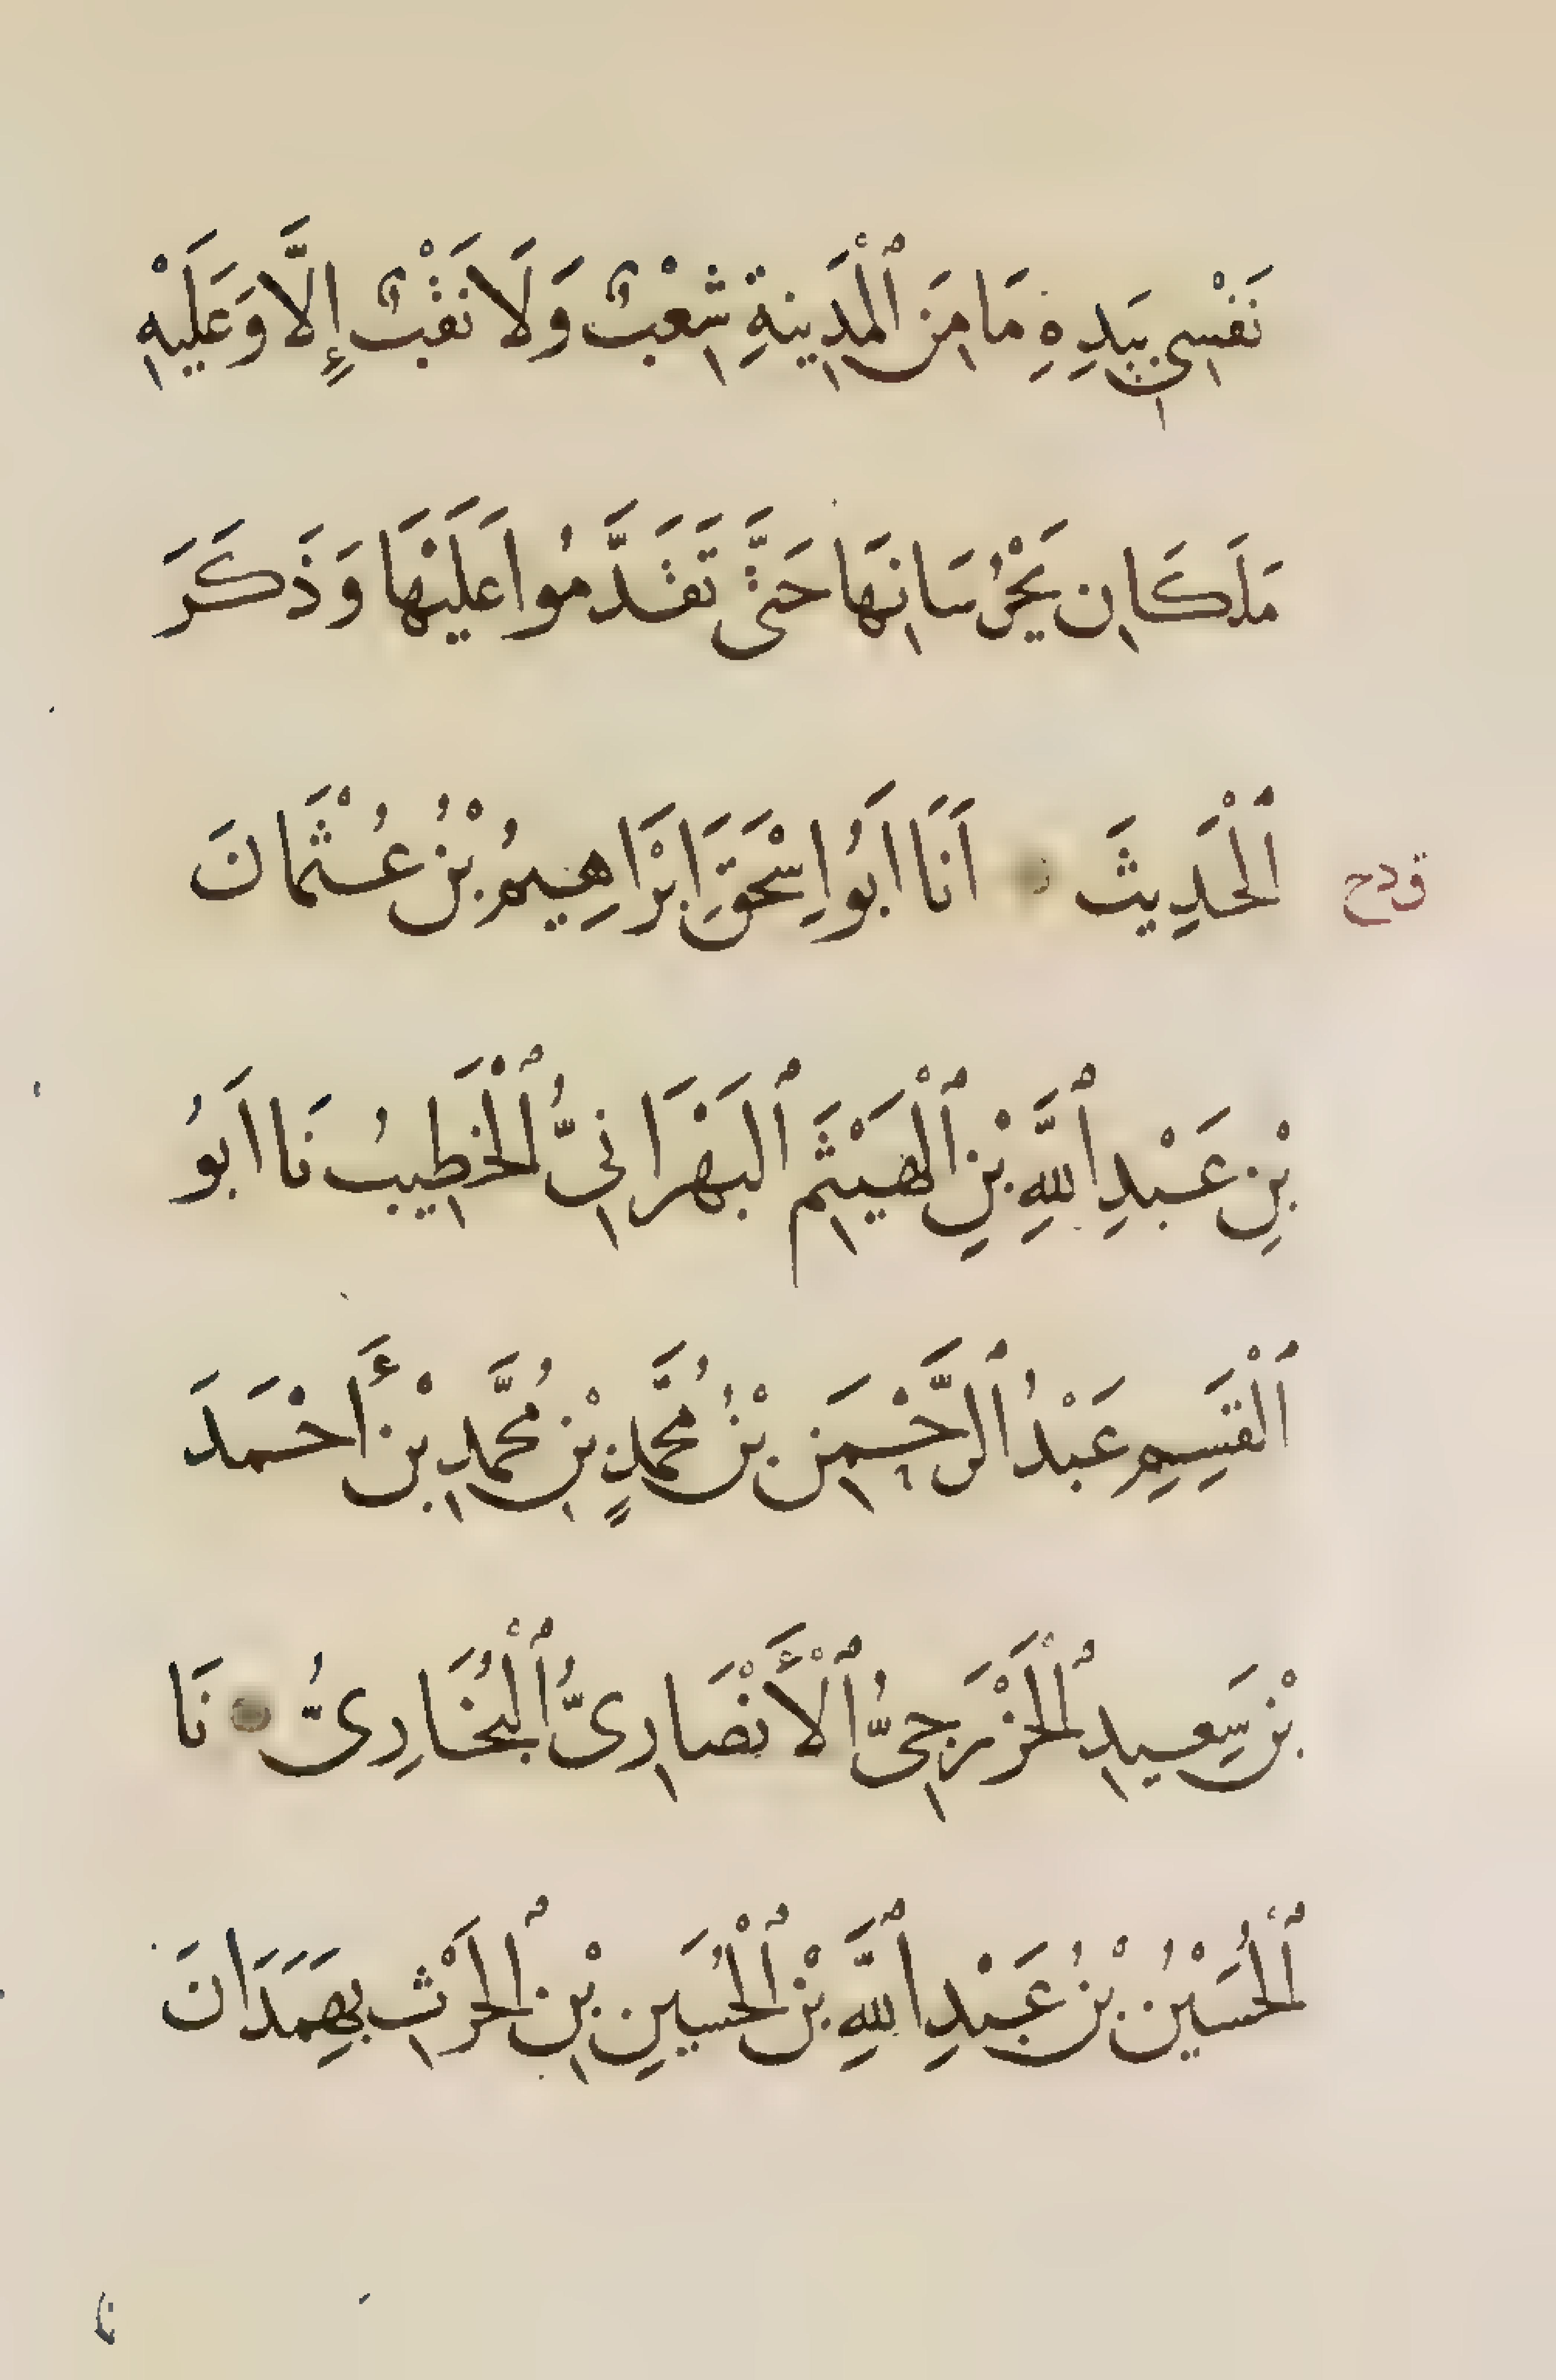 نَفْسِى بِيَدِهِ مَا مِنَ ٱلْمَدِينَةِ شِعْبٌ وَلَا نَقْبٌ إِلَّا وَعَلَيْهِ
مَلَكَانِ يَحْرُسَانِهَا حَتَّى تَقَدَّمُوا عَلَيْهَا وَذَكَرَ
ٱلْحَدِيثَ اَنَا اَبُو اِسْحَقَ اِبْرَاهِيمُ بْنُ عُثْمَانَ
بْنِ عَبْدِ ٱللَّهِ بْنِ ٱلْهَيْثَمِ ٱلبَهْرَانِىُّ ٱلْخَطِيبُ نَا اَبُو
ٱلْقَسِمِ عَبْدُ ٱلرَّحْمَنِ بْنُ مُحَمَّدِ بْنِ مُحَمَّدِ بْنِ أَحْمَدَ
بْنِ سَعِيدٍ ٱلْخَزْرَجِىُّ ٱلْأَنْصَارِىُّ ٱلْبُخَارِىُّ نَا
ٱلْحُسَيْنُ بْنُ عَبْدِ ٱللَّهِ بْنِ ٱلْحُسَيْنِ بْنِ ٱلْحَرْثِ بِهَمَدَانَ